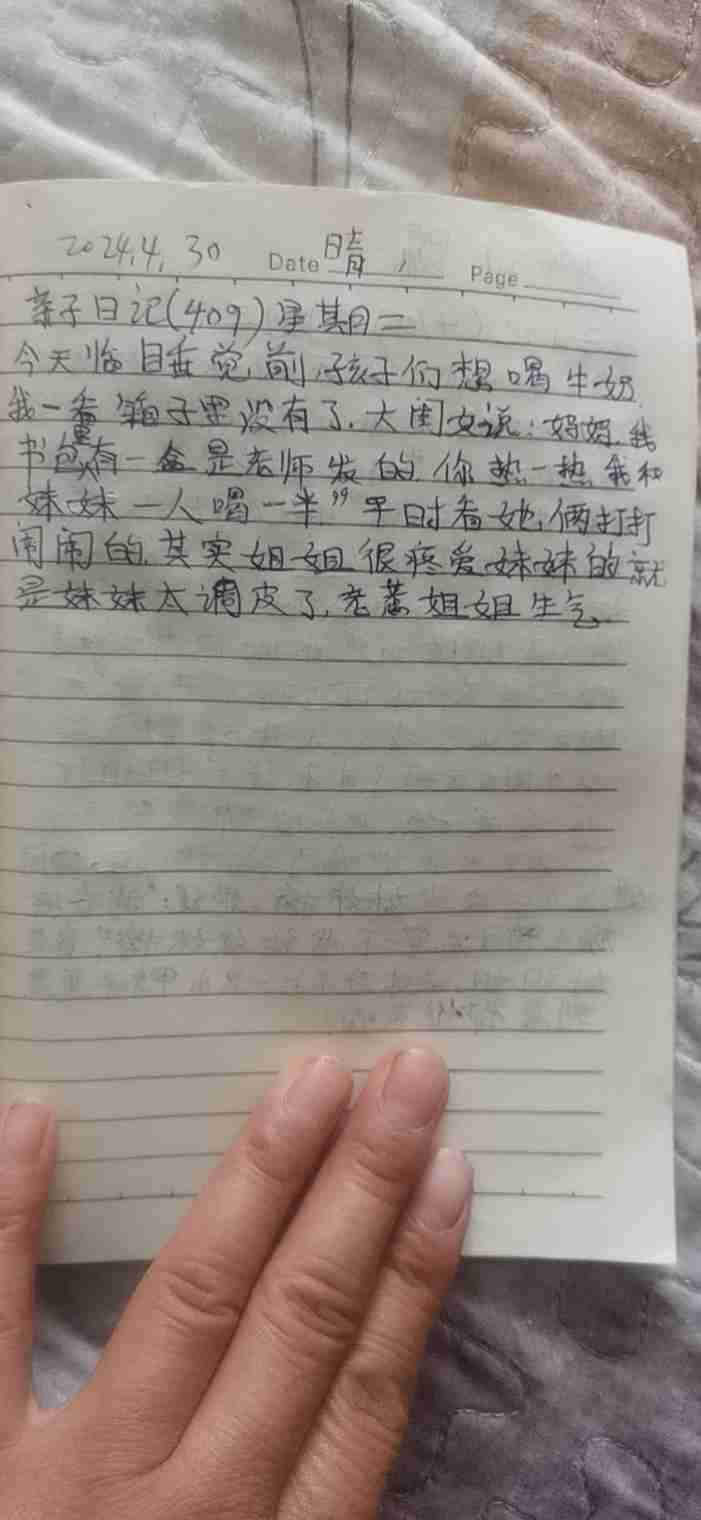 2024.4.30 Date 晴 Page
亲子日记(409)星期二
今天临睡觉前,孩子们想喝牛奶
我一看箱子里没有了.大闺女说:妈妈,我
书包里有一盒是老师发的,你热一热,我和
妹妹一人喝一半”平时看她俩打打
闹闹的,其实姐姐很疼爱妹妹的就
是妹妹太调皮了,老惹姐姐生气